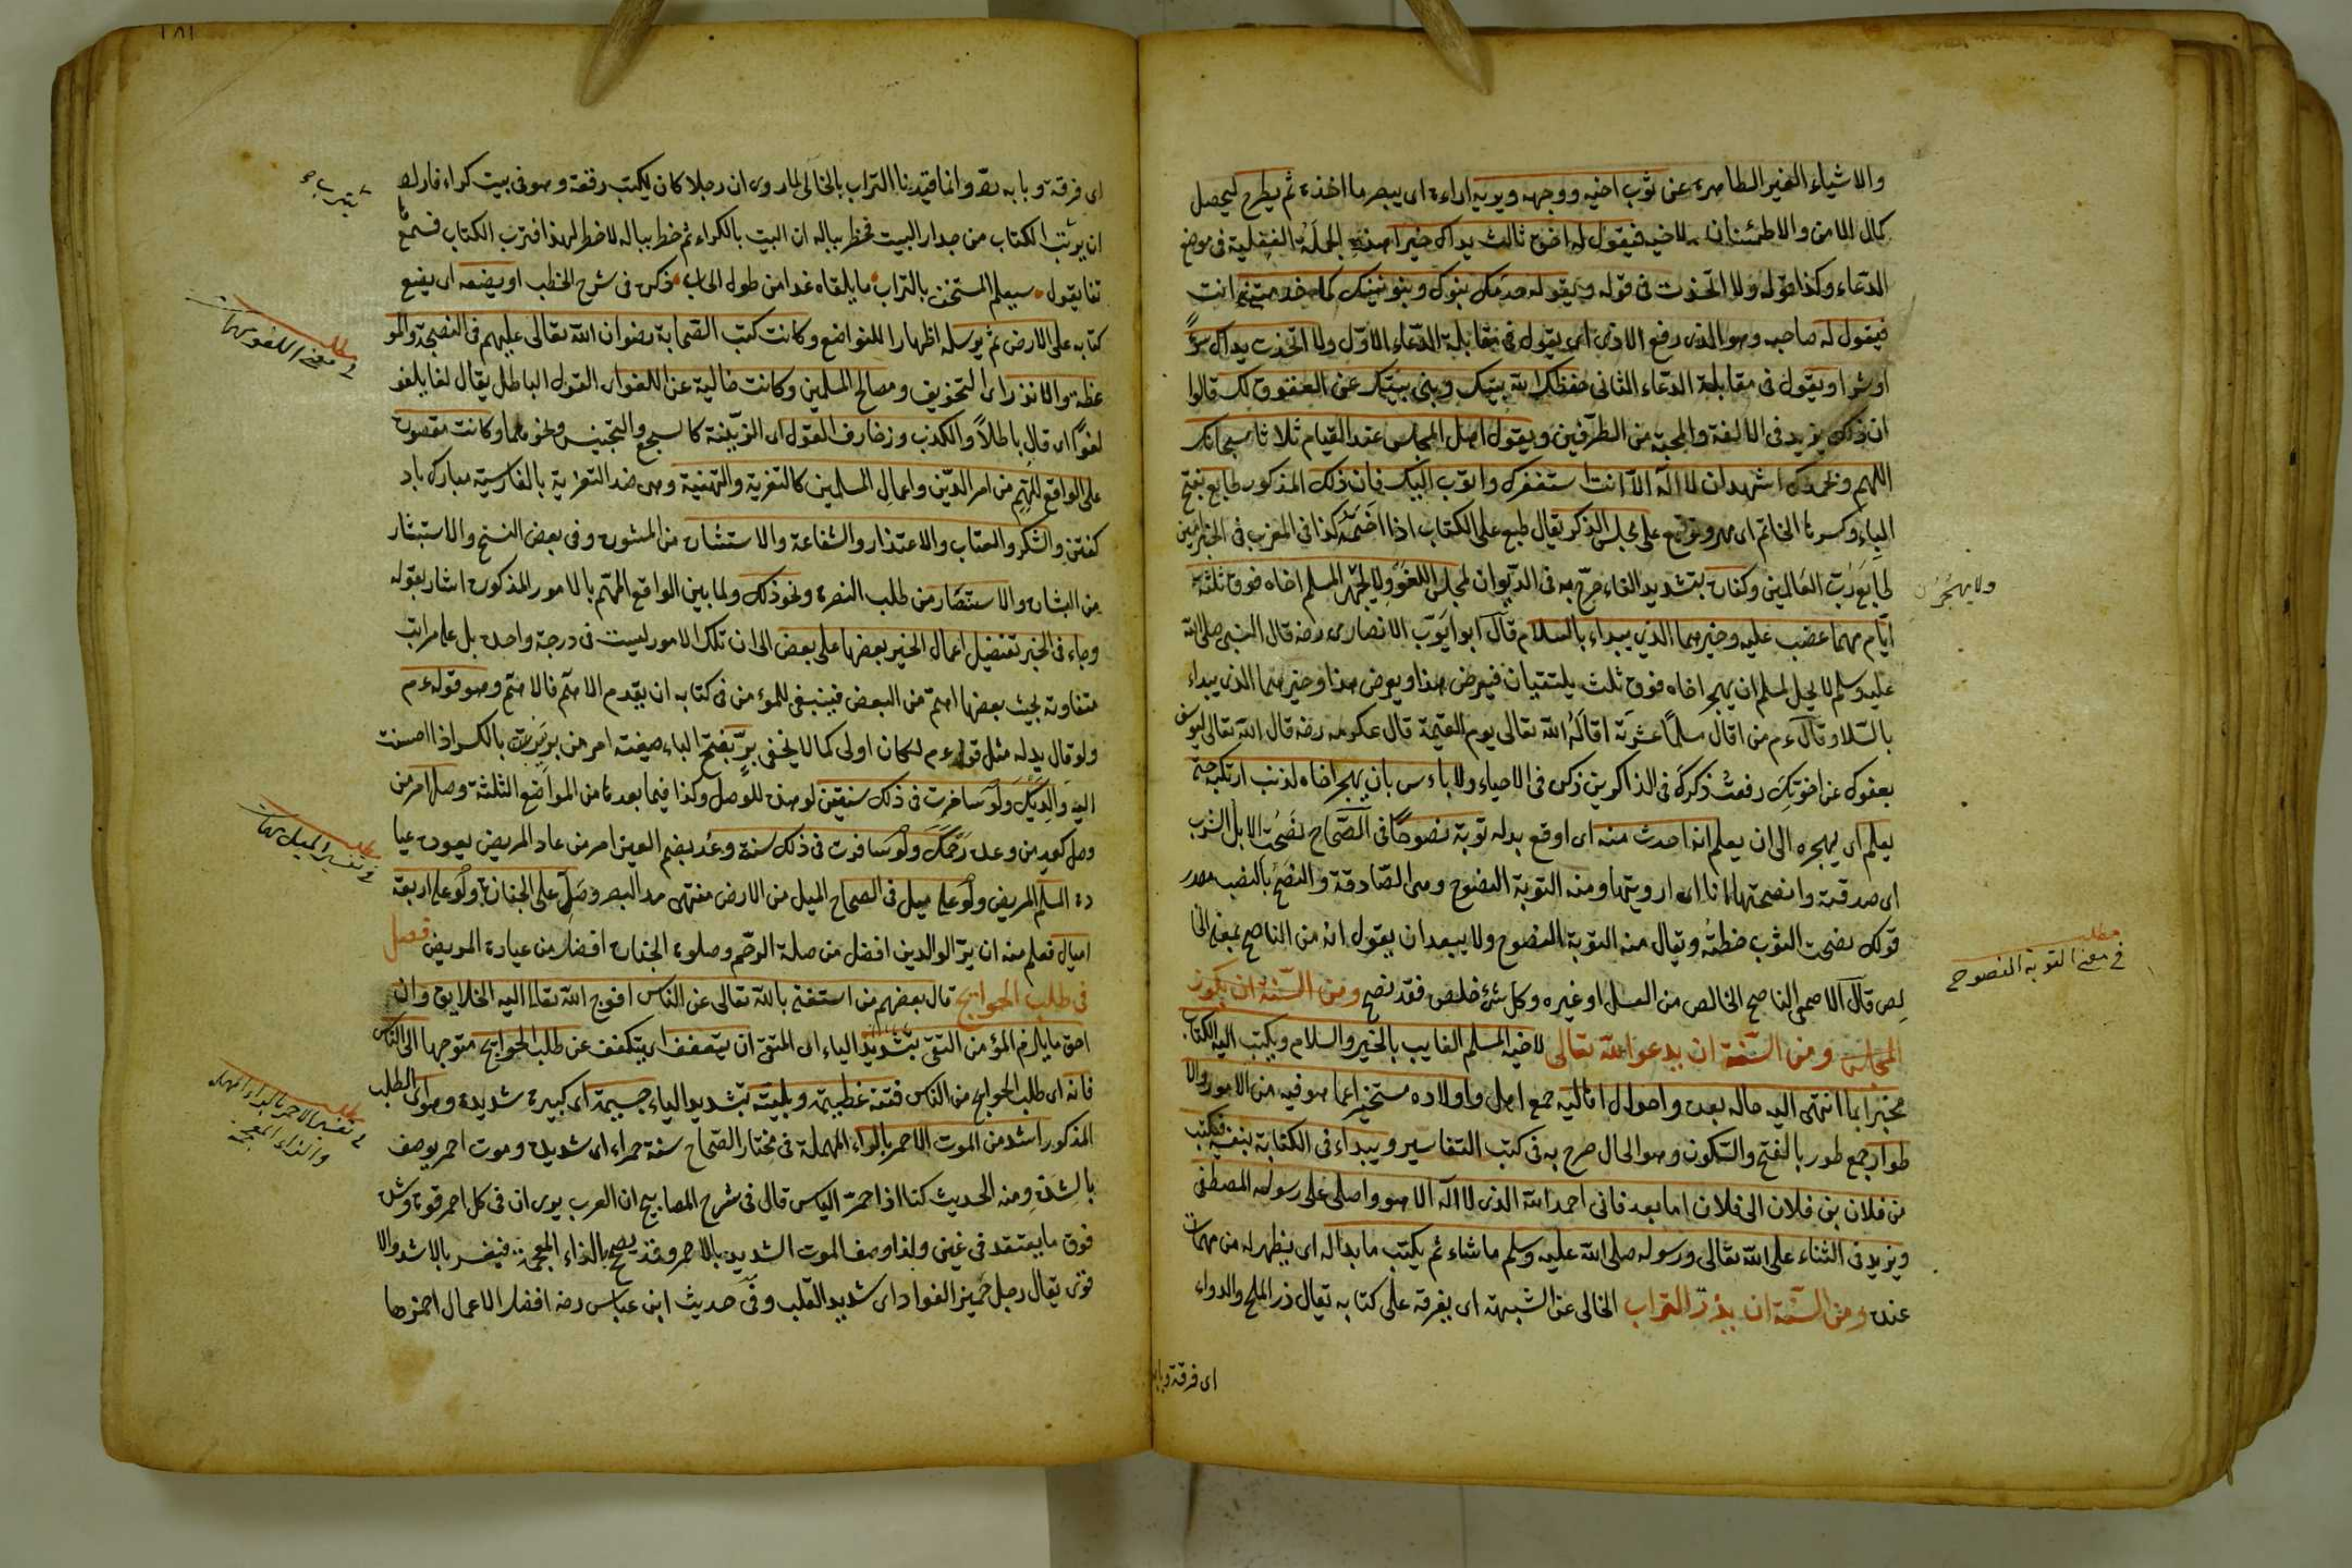 والاشياء الغير الطاهرة عن ثوب اخيه ووجهه ويريه اراءة اى يبصر ما اخذه ثم يطرح ليحصل
كمال الامن والاطمئنان لاخيه فيقول له اخوه ثالث يداك خيرا هذه الجملة الفعلية فى موضع
الدعاء وكذا قوله ولا اتخذت فى قوله ويقول له خدمك بنوك وبنو بنيك كما خدمتنى انت
فيقول له صاحبه وهو الذى رفع الاذى اى يقول فى مقابلة الدعاء الاول ولا اتخذت يداك سوءً
او شرا ويقول فى مقابلة الدعاء الثانى حفظك الله بنيك وبنى بنيك عن العقوق لك قالوا
ان ذلك يزيد فى الالفة والمحبة من الطرفين ويقول اهل المجلس عند القيام ثلاثا سبحانك
اللهم وبحمدك اشهد ان لا اله الا انت استغفرك واتوب اليك فان ذلك المذكور طابع بفتح
الباء وكسرها الخاتم اى مهر وتوقيع على مجلس الذكر يقال طبع على الكتاب اذا اختمه كذا فى المغرب
ايام مهما غضب عليه وخيرهما الذى يبداء بالسلام قال ابو ايوب الانصارى رضه قال النبى صلى الله
عليه وسلم لا يحل لمسلم ان يهجر اخاه فوق ثلث يلتقيان فيعرض هذا ويعرض هذا وخيرهما الذى يبداء
بالسلام وقال عم من اقال مسلما عثرته اقاله الله تعالى يوم القيمة قال عكرمه رضه قال الله تعالى ليوسف
بعفوك عن اخوتك رفعت ذكرك فى الذاكرين ذكره فى الاحياء ولا باءس بان يهجر اخاه لذنب ارتكبه حتى
يعلم اى يهجره الى ان يعلم انه احدث منه اى اوقع بدله توبة نصوحا فى الصحاح نصحت الابل الشرب
اى صدقته وانصحتها انا اى ارويتها ومنه التوبة النصوح وهى الصادقة والنصح بالنصب مصدر
قولك نصحت الثوب خطته ويقال منه التوبة النصوح ولا يبعد ان يقول انه من الناصح بمعنى الخا
لص قال الاصمعى الناصح الخالص من العسل او غيره وكل شئ خلص فقد نصح ومن السنة ان يكون
المجالس ومن السنة ان يدعو الله تعالى لاخيه المسلم الغايب بالخير والسلام ويكتب اليه الكتاب
مخبرا بما انتهى اليه حاله بعده واحوال اهاليه جمع اهل واولاده مستخبرا عما هو فيه من الامور والا
طوار جمع طور بالفتح والسكون وهو الحال صرح به فى كتب التفاسير ويبداء فى الكتابة بنفسه فيكتب
من فلان بن فلان الى فلان اما بعد فانى احمد الله الذى لا اله الا هو واصلى على رسوله المصطفى
ويزيد فى الثناء على الله تعالى ورسوله صلى الله عليه وسلم ما شاء ثم يكتب ما بدا له اى يظهر له من مهمات
عنده ومن السنة ان يذر التراب الخالى عن الشبهة اى يفرقه على كتابه يقال ذر الملح والدواء
اى فرقه وبابه
مطلب
فى معنى التوبة النصوح
اى فرقه وبابه رد وانما قيدنا التراب بالخالى لما روى ان رجلا كان يكتب رقعة وهو فى بيت كراء فاراد
ان يترب الكتاب من جدار البيت فخطر بباله ان البيت بالكراء ثم خطر بباله لا خطر لهذا فترب الكتاب فسمع ها
تفا يقول سيعلم المستخف بالتراب ما يلقاه غدا من طول الحساب ذكره فى شرح الخطب او يضعه اى يضع
كتابه على الارض ثم يرسله اظهارا للتواضع وكانت كتب الصحابة رضوان الله تعالى عليهم فى النصيحة والمو
عظة والانذار اى التخويف ومصالح المسلمين وكانت خالية عن اللغو اى القول الباطل يقال لغا يلغو
لغوا اى قال باطلا والكذب وزخارف القول اى المزينة كالسجع والتجنيس ونحوهما وكانت مقصورة
على الواقع المهم من امر الدين واعمال المسلمين كالتعزية والتهنية وهى ضد التعزية بالفارسية مبارك باد
كفتن والشكر والعتاب والاعتذار والشفاعة والاستشارة من المشورة وفى بعض النسخ والاستبشار
من البشارة والاستنصار من طلب النصرة ونحو ذلك ولما بين الواقع المهم بالامور المذكورة اشار بقوله
وجاء فى الخبر تفضيل اعمال الخير بعضها على بعض الى ان تلك الامور ليست فى درجة واحدة بل على مراتب
متفاوتة بحيث بعضها اهم من البعض فينبغى للمؤمن فى كتابه ان يقدم الاهم فالاهم وهو قوله عم
ولو قال بدله مثل قوله عم لكان اولى كما لا يخفى بر بفتح الباء صيغة امر من بررت بالكسر اذا احسنت
اليه والديك ولو سافرت فى ذلك سنتين لو هذه للوصل وكذا فيما بعدها من المواضع الثلثة وصل امر من
وصل كعد من وعد رحمك ولو سافرت فى ذلك سنة وعد بضم العين امر من عاد المريض يعوده عيا
دة المسلم المريض ولو على ميل فى الصحاح الميل من الارض منتهى مد البصر وصل على الجنازة ولو على اربعة
اميال فعلم منه ان بر الوالدين افضل من صلة الرحم وصلوة الجنازة افضل من عيادة المريض فصل
فى طلب الحوايج قال بعضهم من استغنى بالله تعالى عن الناس احوج الله تعالى اليه الخلايق وان
احق ما يلزم المؤمن التقى بتشديد الياء اى المتقى ان يتعفف اى يتكفف عن طلب الحوايج متوجها الى الناس
فانه اى طلب الحوايج من الناس فتنة عظيمة وبلية بتشديد الياء جسيمة اى كبيرة شديدة وهو اى الطلب
المذكور اشد من الموت الاحمر بالراء المهملة فى مختار الصحاح سنة حمراء اى شديدة وموت احمر يوصف
بالشدة ومنه الحديث كنا اذا احمر الباس قال فى شرح المصابيح ان العرب يرى ان فى كل احمر قوة وشدة
فوق ما يعتقد فى غيره ولذا وصف الموت الشديد بالاحمر وقد يصح بالزاء المعجمة فيفسر بالاشد والا
قوى يقال رجل حميز الفواد اى شديد القلب وفى حديث ابن عباس رضه افضل الاعمال احمزها
مطلب
فى معنى اللغو
مطلب
فى تفسير الميل
مطلب